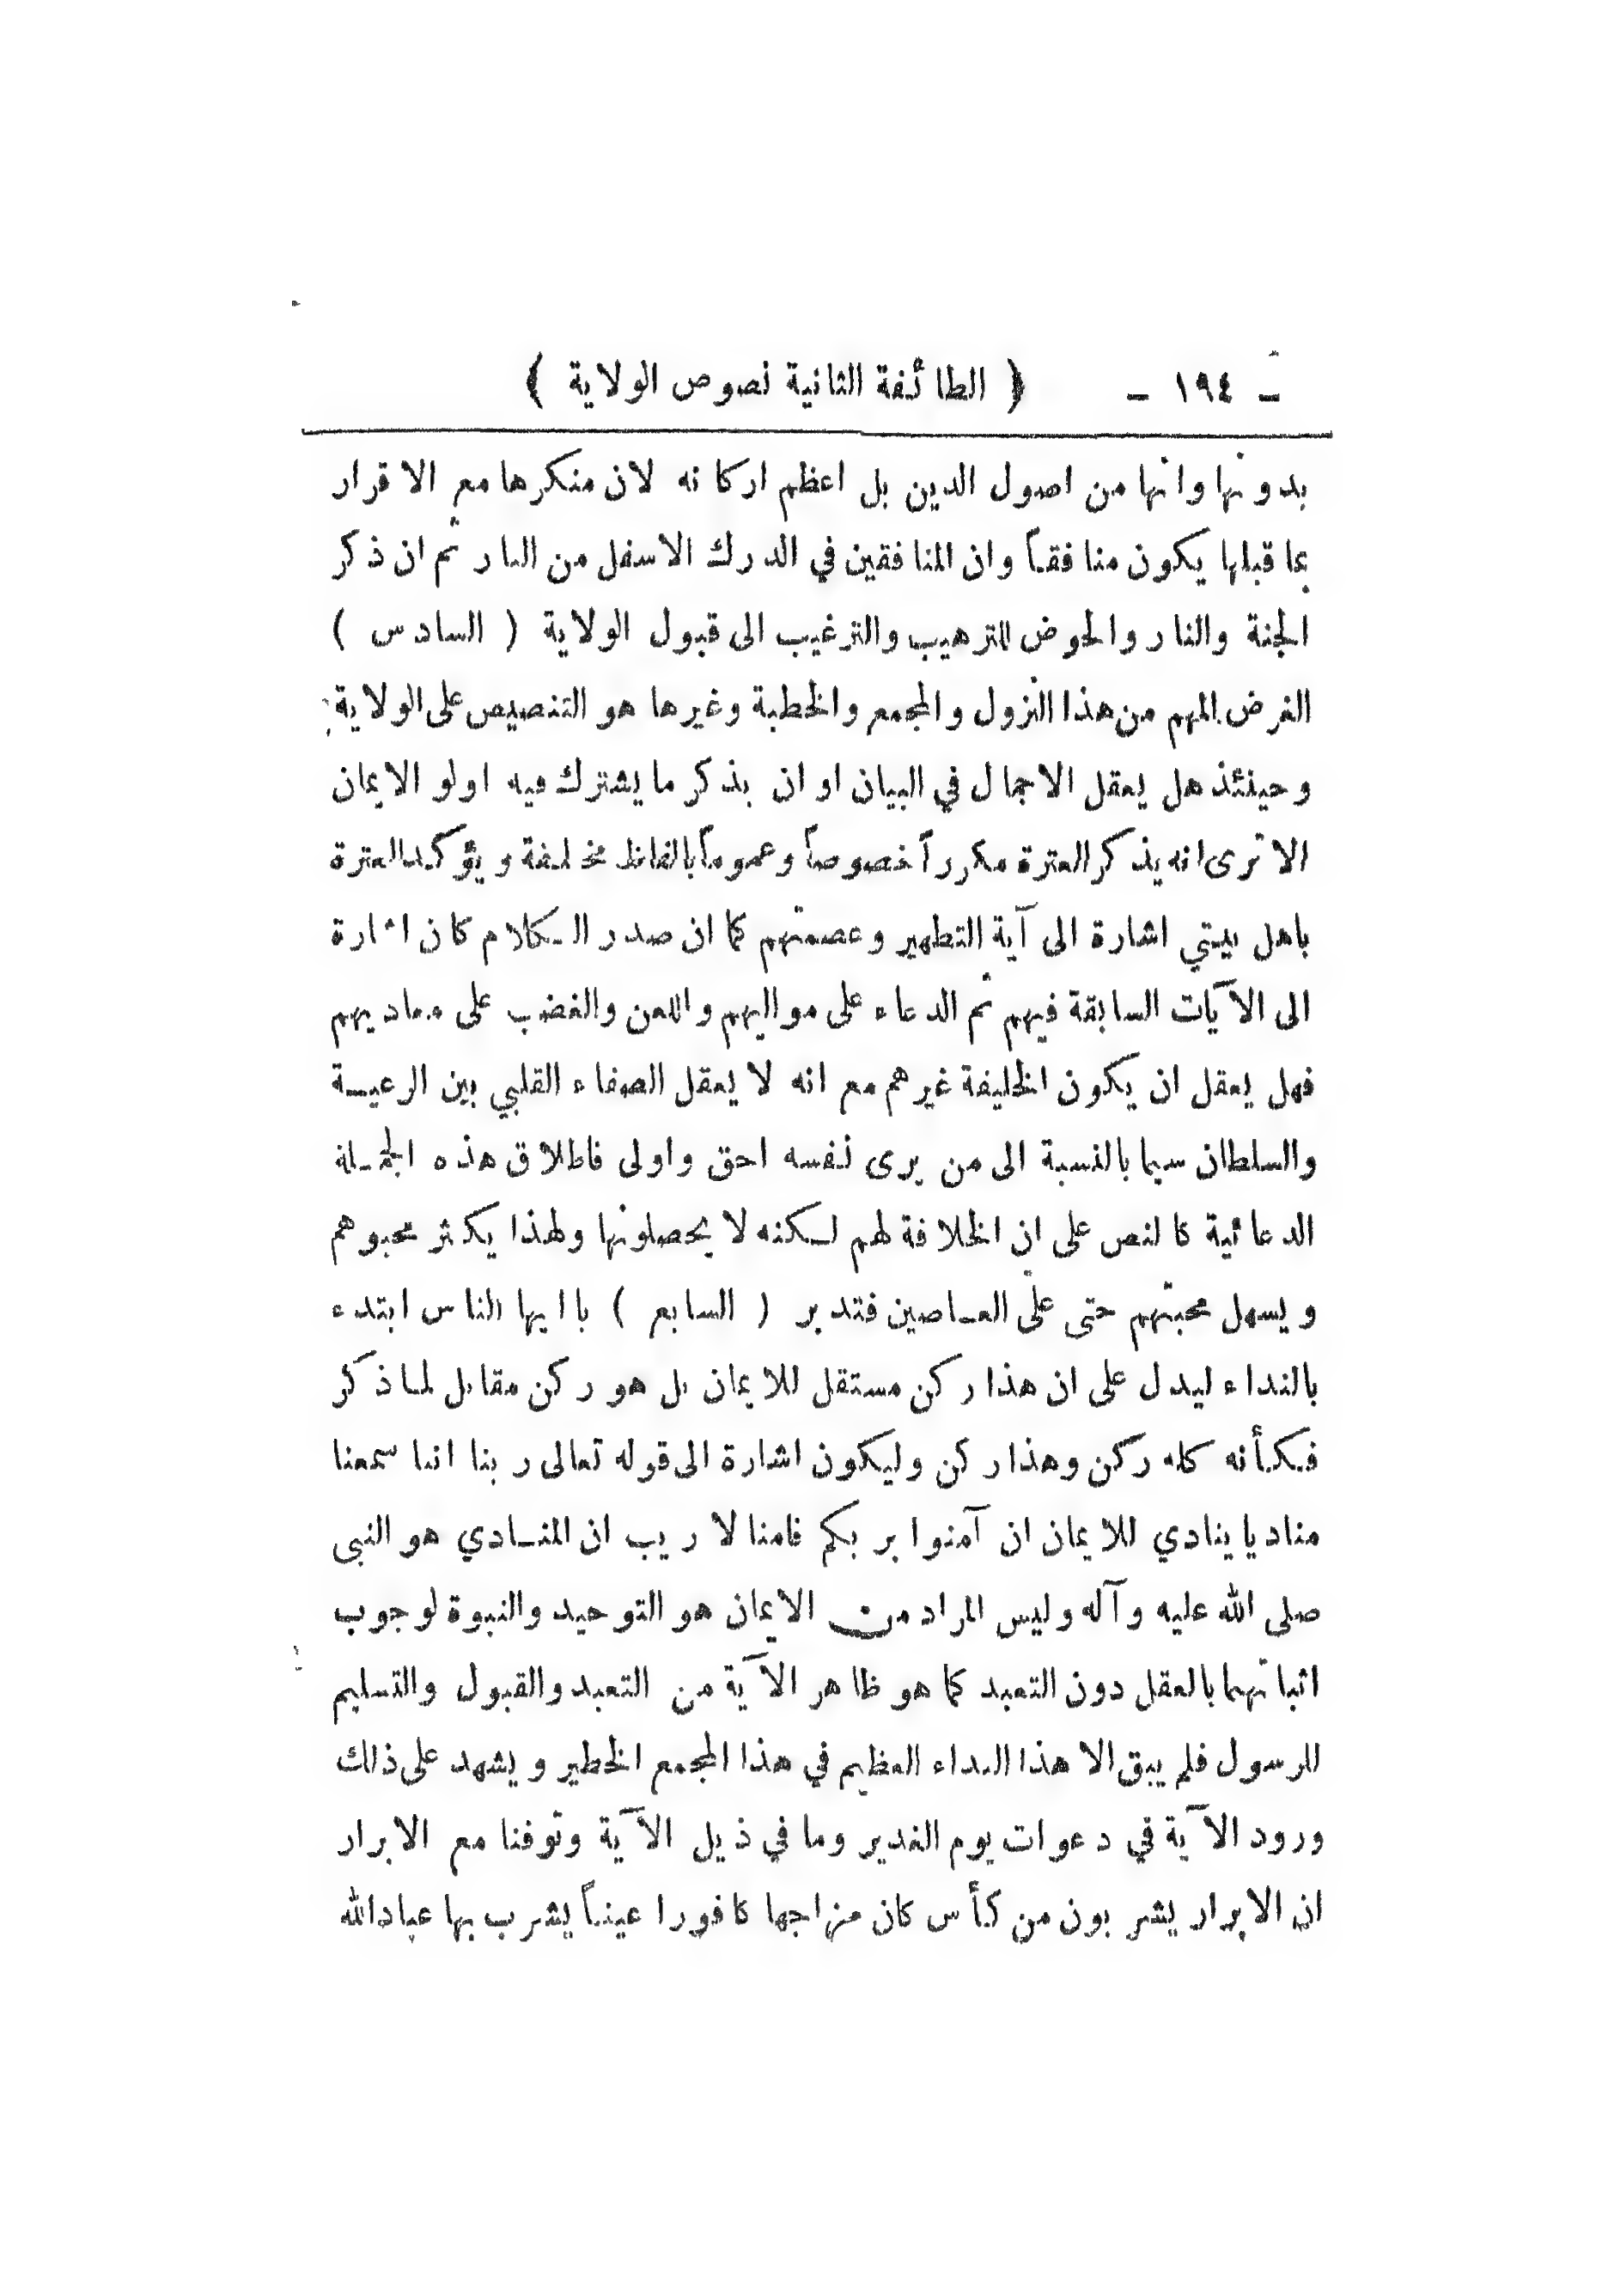 ـ ١٩٤ ـ ﴿ الطائفة الثانية نصوص الولاية ﴾
بدونها وانها من اصول الدين بل اعظم اركانه لان منكرها مع الاقرار
بما قبلها يكون منافقاً وان المنافقين في الدرك الاسفل من النار ثم ان ذكر
الجنة والنار والحوض للترهيب والترغيب الى قبول الولاية ( السادس )
الغرض المهم من هذا النزول والمجمع والخطبة وغيرها هو التنصيص على الولاية
وحينئذ هل يعقل الاجمال في البيان او ان يذكر ما يشترك فيه اولو الايمان
الا ترى انه يذكر العترة مكرراً خصوصاً وعموماً بالفاظ مختلفة ويؤكد العترة
باهل بيتي اشارة الى آية التطهير وعصمتهم كما ان صدر الكلام كان اشارة
الى الآيات السابقة فيهم ثم الدعاء على مواليهم واللعن والغضب على معاديهم
فهل يعقل ان يكون الخليفة غيرهم مع انه لا يعقل الصفاء القلبي بين الرعيـة
والسلطان سيما بالنسبة الى من يرى نفسه احق واولى فاطلاق هذه الجملة
الدعائية كالنص على ان الخلافة لهم لكنه لا يحصلونها ولهذا يكثر محبوهم
ويسهل محبتهم حتى على العـاصين فتدبر ( السابع ) با ايها الناس ابتدء
بالنداء ليدل على ان هذا ركن مستقل للايمان بل هو ركن مقابل لما ذكر
فكأنه كله ركن وهذا ركن وليكون اشارة الى قوله تعالى ربنا اننا سمعنا
مناديا ينادي للايمان ان آمنوا بربكم فامنا لا ريب ان المنـادي هو النبى
صلى الله عليه وآله وليس المراد من الايمان هو التوحيد والنبوة لوجوب
اثباتهما بالعقل دون التعبد كما هو ظاهر الآية من التعبد والقبول والتسليم
للرسول فلم يبق الا هذا النداء العظيم في هذا المجمع الخطير ويشهد على ذلك
ورود الآية في دعوات يوم الغدير وما في ذيل الآية وتوفنا مع الابرار
ان الابرار يشربون من كأس كان مزاجها كافورا عيناً يشرب بها عبادالله